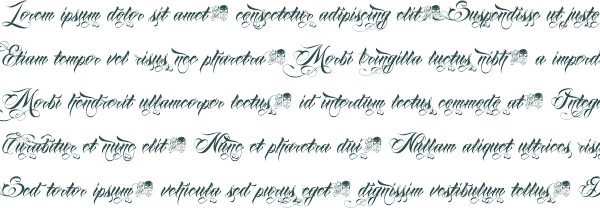 Lorem ipsum dolor sit amet consectetur adipiscing elit Suspendisse ut justo
Etiam tempor vel risus nec pharetra Morbi fringilla luctus nibh a imperd
Morbi hendrerit ullamcorper lectus id interdum lectus commodo at Intege
Curabitur et nunc elit Nunc et pharetra dui Nullam aliquet ultrices risu
Sed tortor ipsum vehicula sed purus eget dignissim vestibulum tellus D